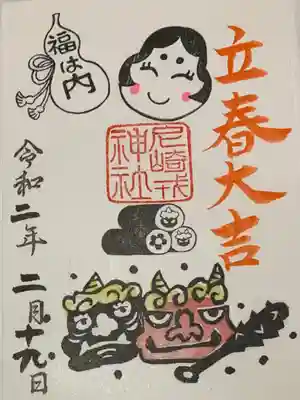 立春大吉
福は内
尼崎戎
神社
令和二年 二月十九日